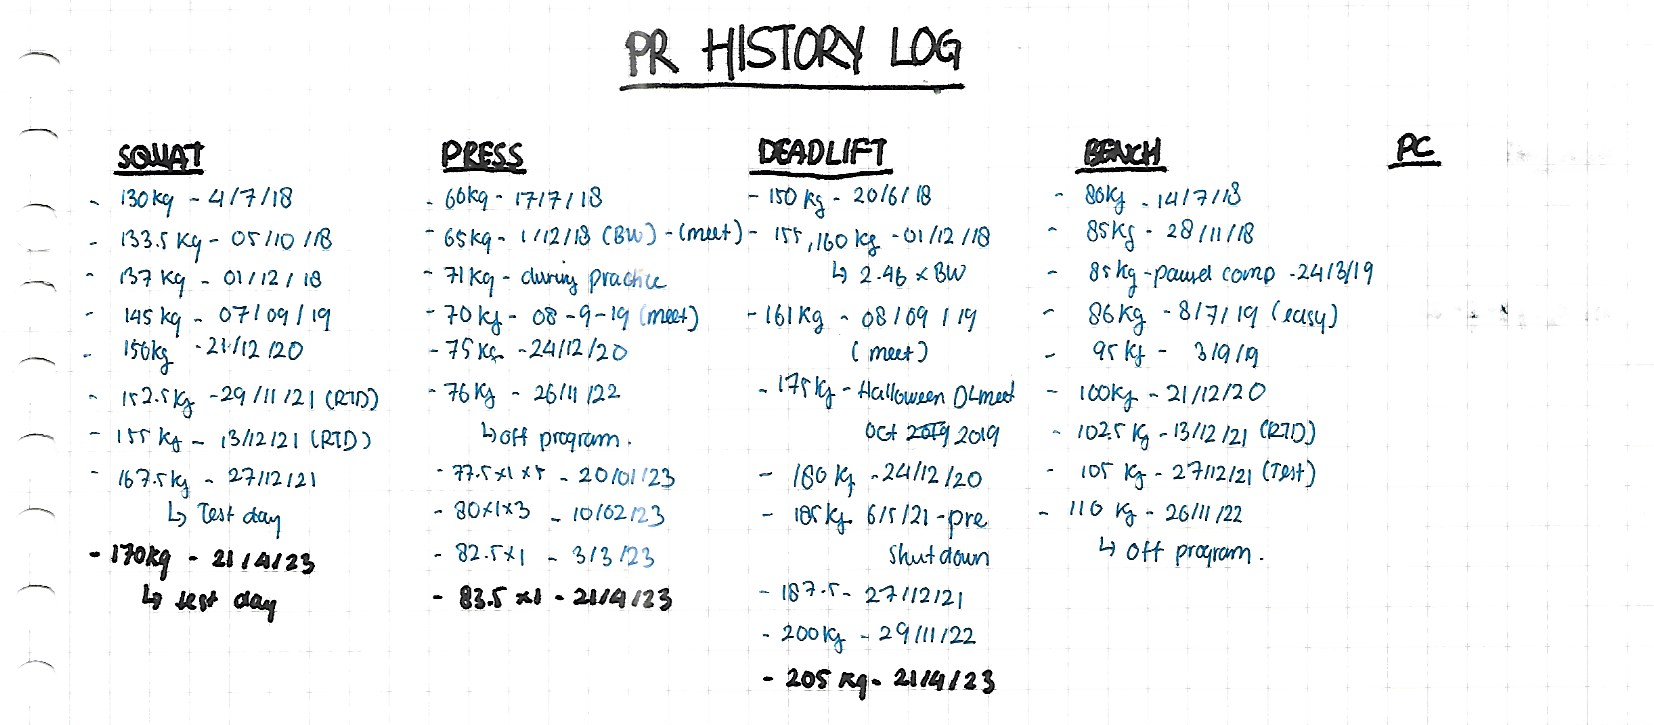 PR HISTORY LOG
SQUAT
- 130kg - 4/7/18
- 133.5 Kg - 05/10/18
- 137 Kg - 01/12/18
- 145 kg - 07/09/19
- 150kg - 21/12/20
- 152.5kg - 29/11/21 (RTD)
- 155 kg - 13/12/21 (RTD)
- 167.5kg - 27/12/21
↳ Test day
- 170kg - 21/4/23
↳ test day
PRESS
- 60kg - 17/7/18
- 65kg - 1/12/18 (BW) - (meet)
- 71Kg - during practice
- 70kg - 08-9-19 (meet)
- 75Kg - 24/12/20
- 76Kg - 26/11/22
↳ off program.
- 77.5x1x5 - 20/01/23
- 80x1x3 - 10/02/23
- 82.5x1 - 3/3/23
- 83.5 x1 - 21/4/23
DEADLIFT
- 150 kg - 20/6/18
- 155, 160 kg - 01/12/18
↳ 2.46 x BW
- 161Kg - 08/09/19
(meet)
- 175kg - Halloween DL meet
Oct 2019
- 180 kg - 24/12/20
- 185kg. 6/5/21 - pre
shutdown
- 187.5 - 27/12/21
- 200kg - 29/11/22
- 205 kg - 21/4/23
BENCH
- 80kg - 14/7/18
- 85kg - 28/11/18
- 85kg - paused comp - 24/3/19
- 86Kg - 8/7/19 (easy)
- 95 kg - 3/9/19
- 100kg - 21/12/20
- 102.5 kg - 13/12/21 (RTD)
- 105 kg - 27/12/21 (Test)
- 110 kg - 26/11/22
↳ off program.
PC